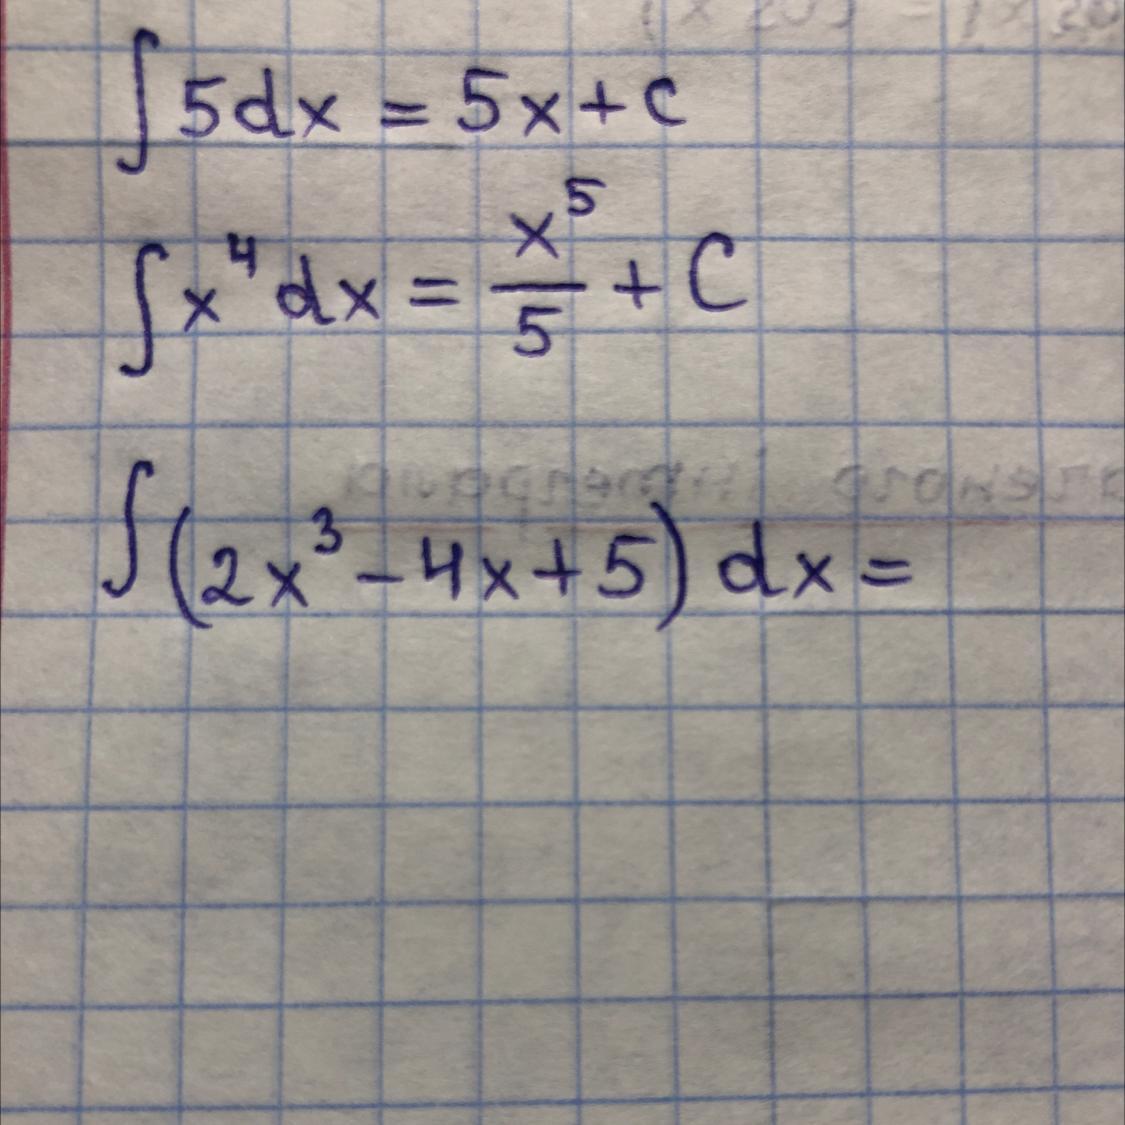 ∫5dx = 5x+c
∫x⁴dx = x⁵/5 + C
∫(2x³-4x+5) dx =